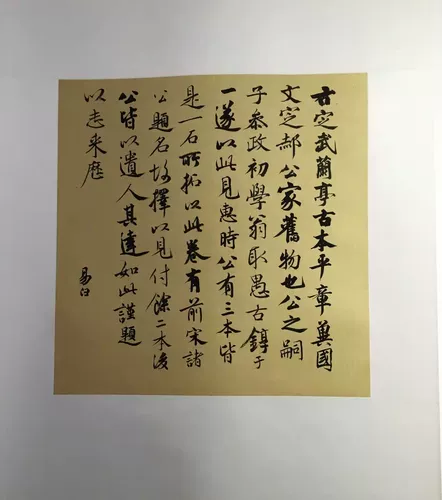 古定武蘭亭古本平章冀國
文定郝公家舊物也公之嗣
子叅政初學翁取愚古錞于
一遂以此見惠時公有三本皆
是一石所拓以此卷有前宋諸
公題名故擇以見付餘二本後
公皆以遺人其達如此謹題
以志来歷
易臼